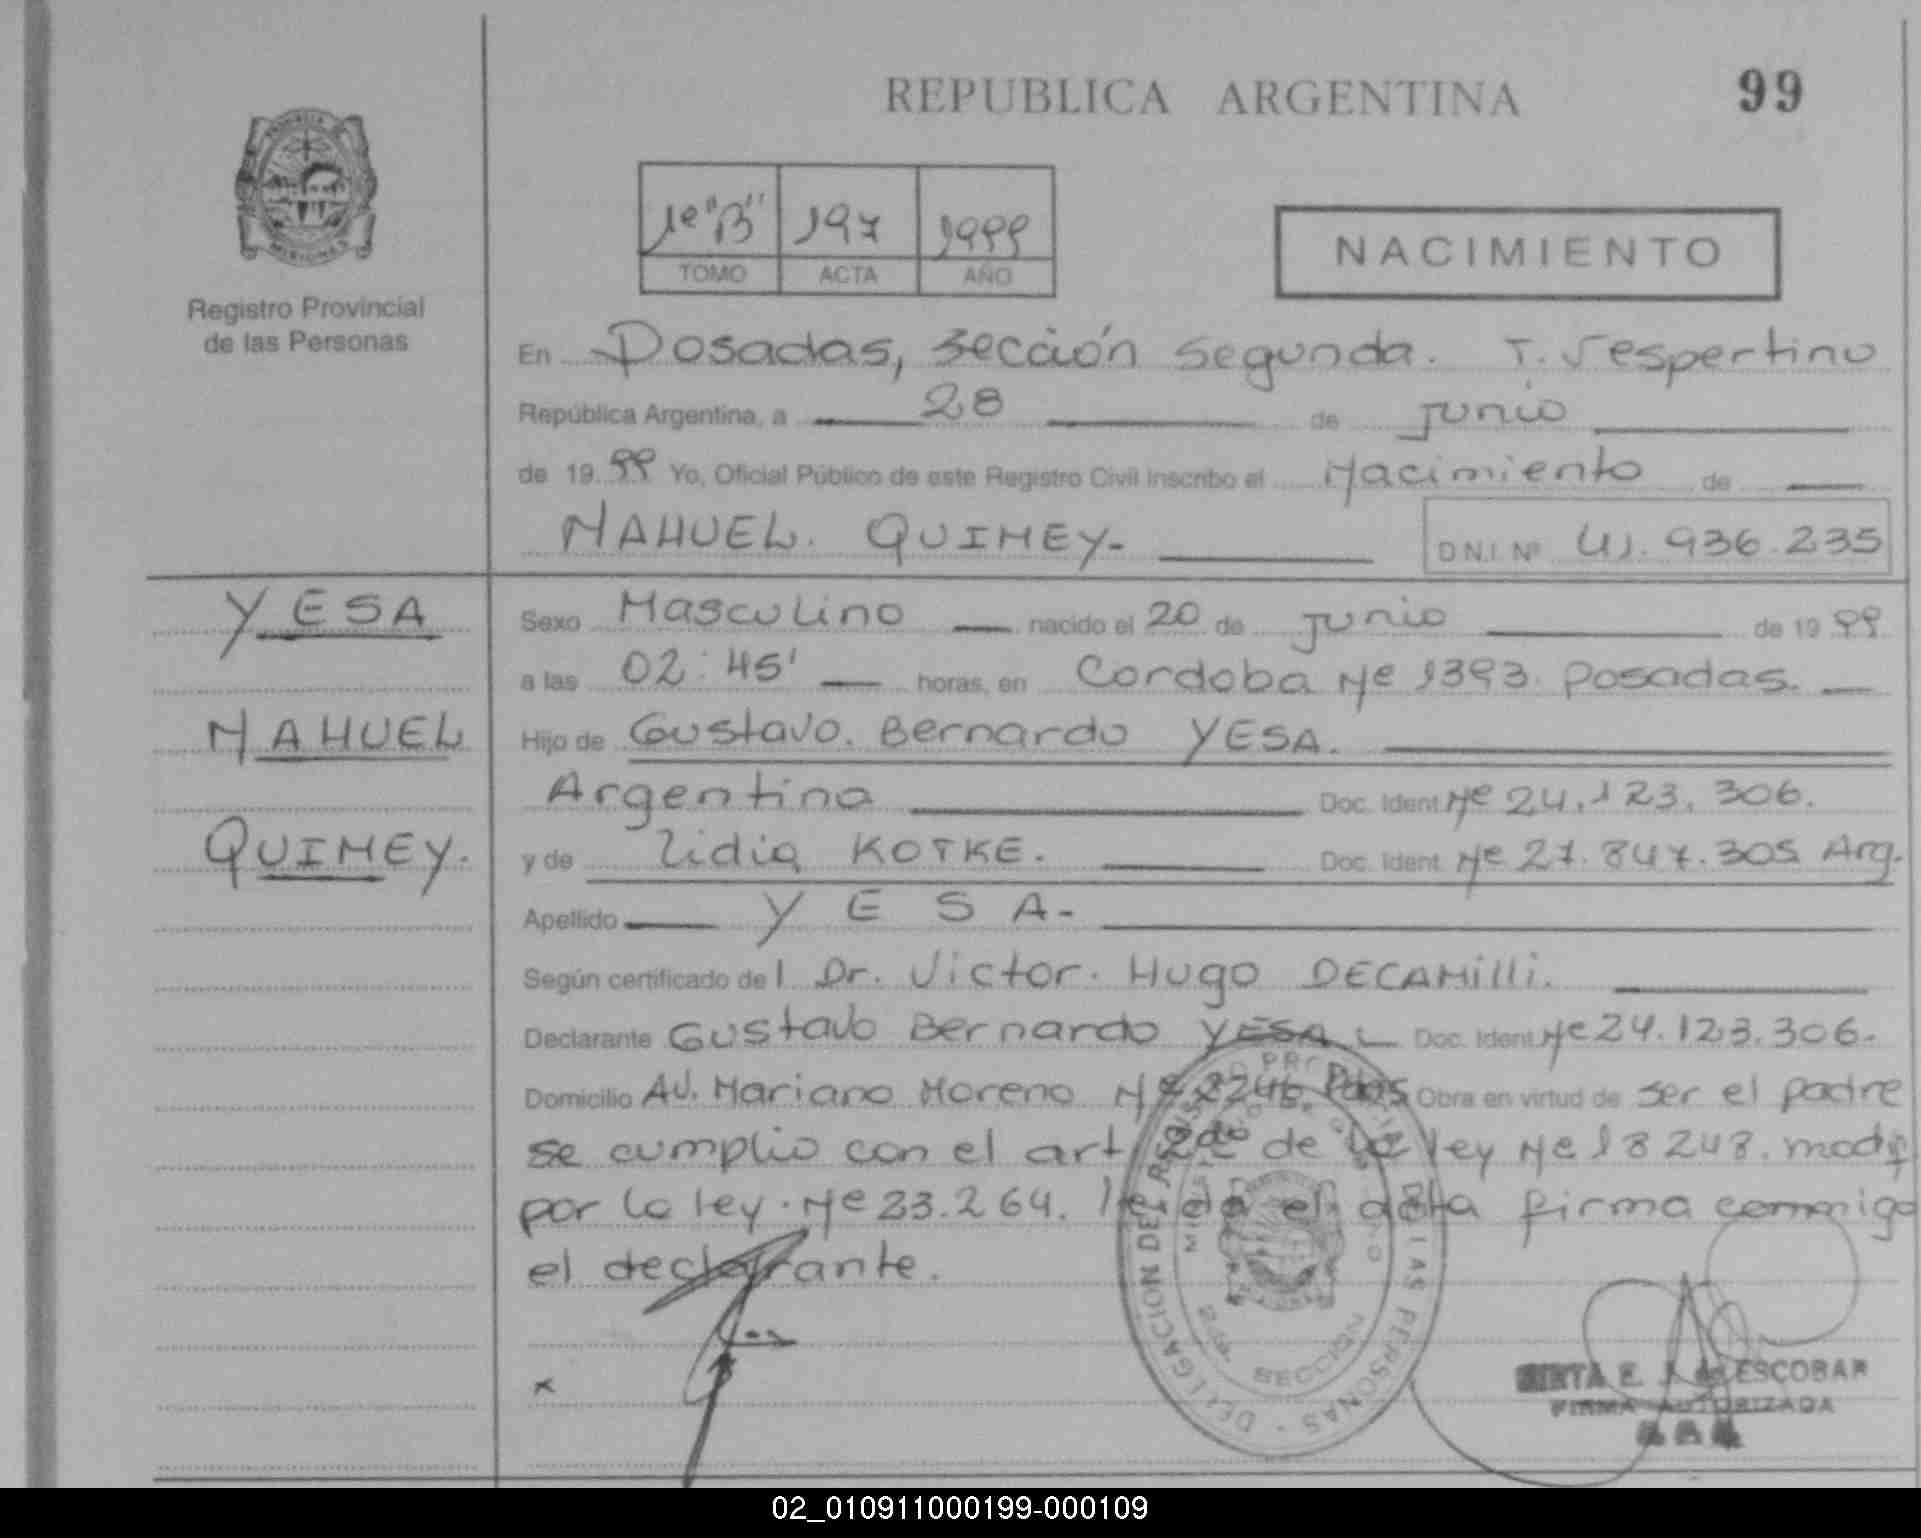 REPUBLICA ARGENTINA
99
Registro Provincial
de las Personas
1º "B" 197 1999
TOMO ACTA AÑO
NACIMIENTO
En Posadas, sección segunda. T. Vespertino
República Argentina, a 28 de junio
de 1999 Yo, Oficial Público de este Registro Civil Inscribo el Nacimiento de
NAHUEL QUIMEY.-
D.N.I. Nº 41.936.235
YESA
NAHUEL
QUIMEY.
Sexo Masculino nacido el 20 de junio de 1999
a las 02:45' horas, en Cordoba Nº 1393. Posadas.
Hijo de Gustavo. Bernardo YESA.
Argentina Doc. Ident. Nº 24.123.306.
y de Lidia KOTKE. Doc. Ident. Nº 27.847.305 Arg.
Apellido YESA-
Según certificado del Dr. Victor. Hugo DECAMilli.
Declarante Gustavo Bernardo YESA Doc. Ident. Nº 24.123.306.
Domicilio Av. Mariano Moreno Nº 2246 Pdas Obra en virtud de ser el padre
se cumplio con el art 2do de la ley Nº 18248. modif
por la ley. Nº 23.264. leida el acta firma conmigo
el declarante.
x
DELEGACION DEL REGISTRO PROVINCIAL DE LAS PERSONAS
2da. SECCION
ESCOBAR
FIRMA AUTORIZADA
02_010911000199-000109